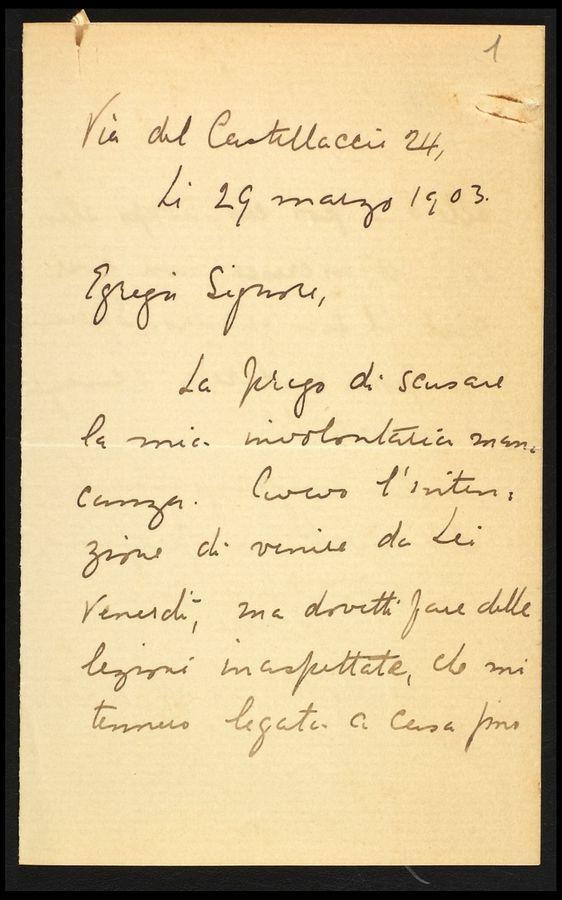 1
Via del Castellaccio 24,
Li 29 marzo 1903.
Egregio Signore,
La prego di scusare
la mia involontaria man-
canza. Avevo l'inten-
zione di venire da Lei
Venerdì, ma dovetti fare delle
lezioni inaspettate, che mi
tennero legata a casa fino